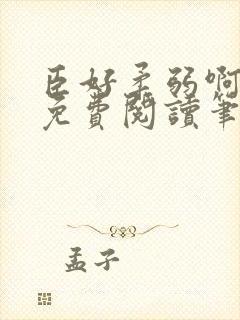 臣好柔弱啊
免費閱讀筆
孟子